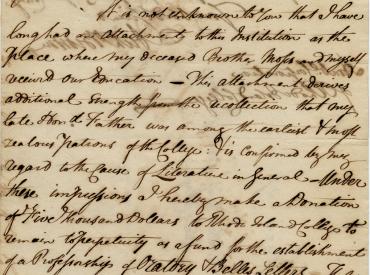 It is not unknown to you that I have
long had an attachment to this Institution as the
place where my deceased Brother Moses and myself
received our Education – This attachment derives
additional strength from the recollection that my
late Hond. Father was among the earliest & most
zealous Patrons of the College: & is confirmed by my
regard to the Cause of Literature in General – Under
these impressions I hereby make a Donation
of Five Thousand Dollars to Rhode Island College to
remain to perpetuity as a fund for the establishment
of a Professorship of Oratory & Belles Letters. The